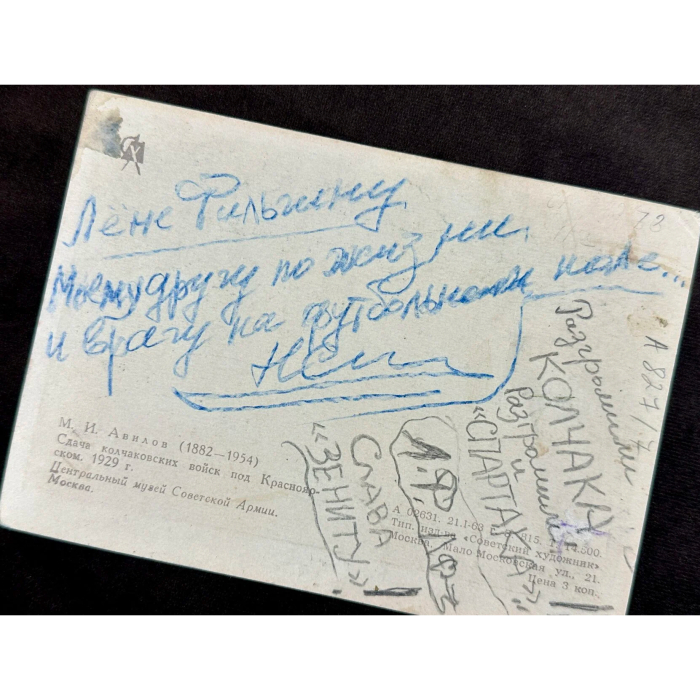 78
Лёне Фильгину
Моему другу по жизни
и врагу на футбольном поле...
А 827/7
М. И. Авилов (1882—1954)
Сдача колчаковских войск под Краснояр-
ском. 1929 г.
Центральный музей Советской Армии.
Москва.
А 02631. 21.I-63
Тип. изд-ва «Советский художник»
Москва, Мало Московская ул., 21.
Цена 3 коп.
Разгромили
КОЛЧАКА
разгромили
и
«СПАРТАКА»!
СЛАВА
«ЗЕНИТУ»!